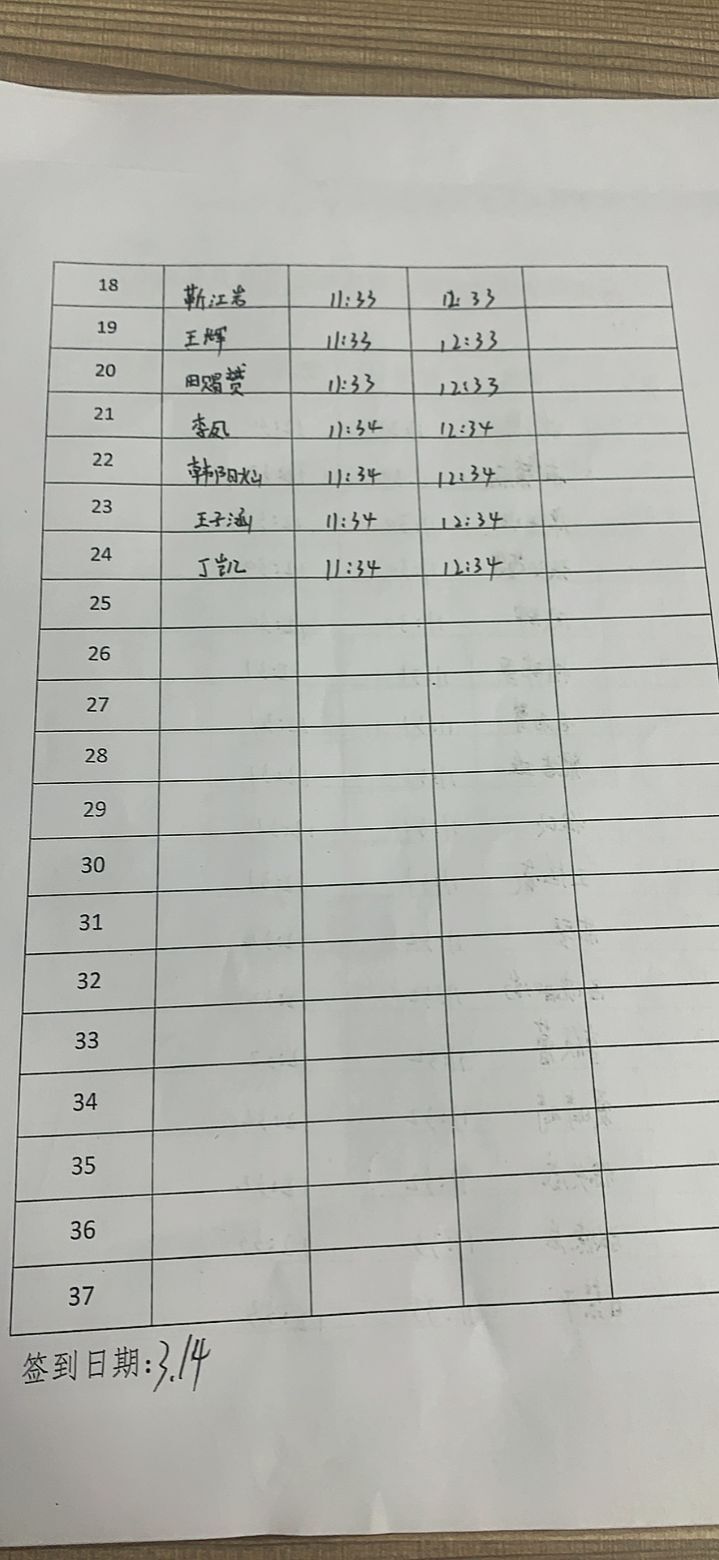 18 靳江岩 11:33 12:33
19 王辉 11:33 12:33
20 田赐赟 11:33 12:33
21 李凤 11:34 12:34
22 韩阳灿 11:34 12:34
23 王子涵 11:34 12:34
24 丁凯 11:34 12:34
25
26
27
28
29
30
31
32
33
34
35
36
37
签到日期:3.14